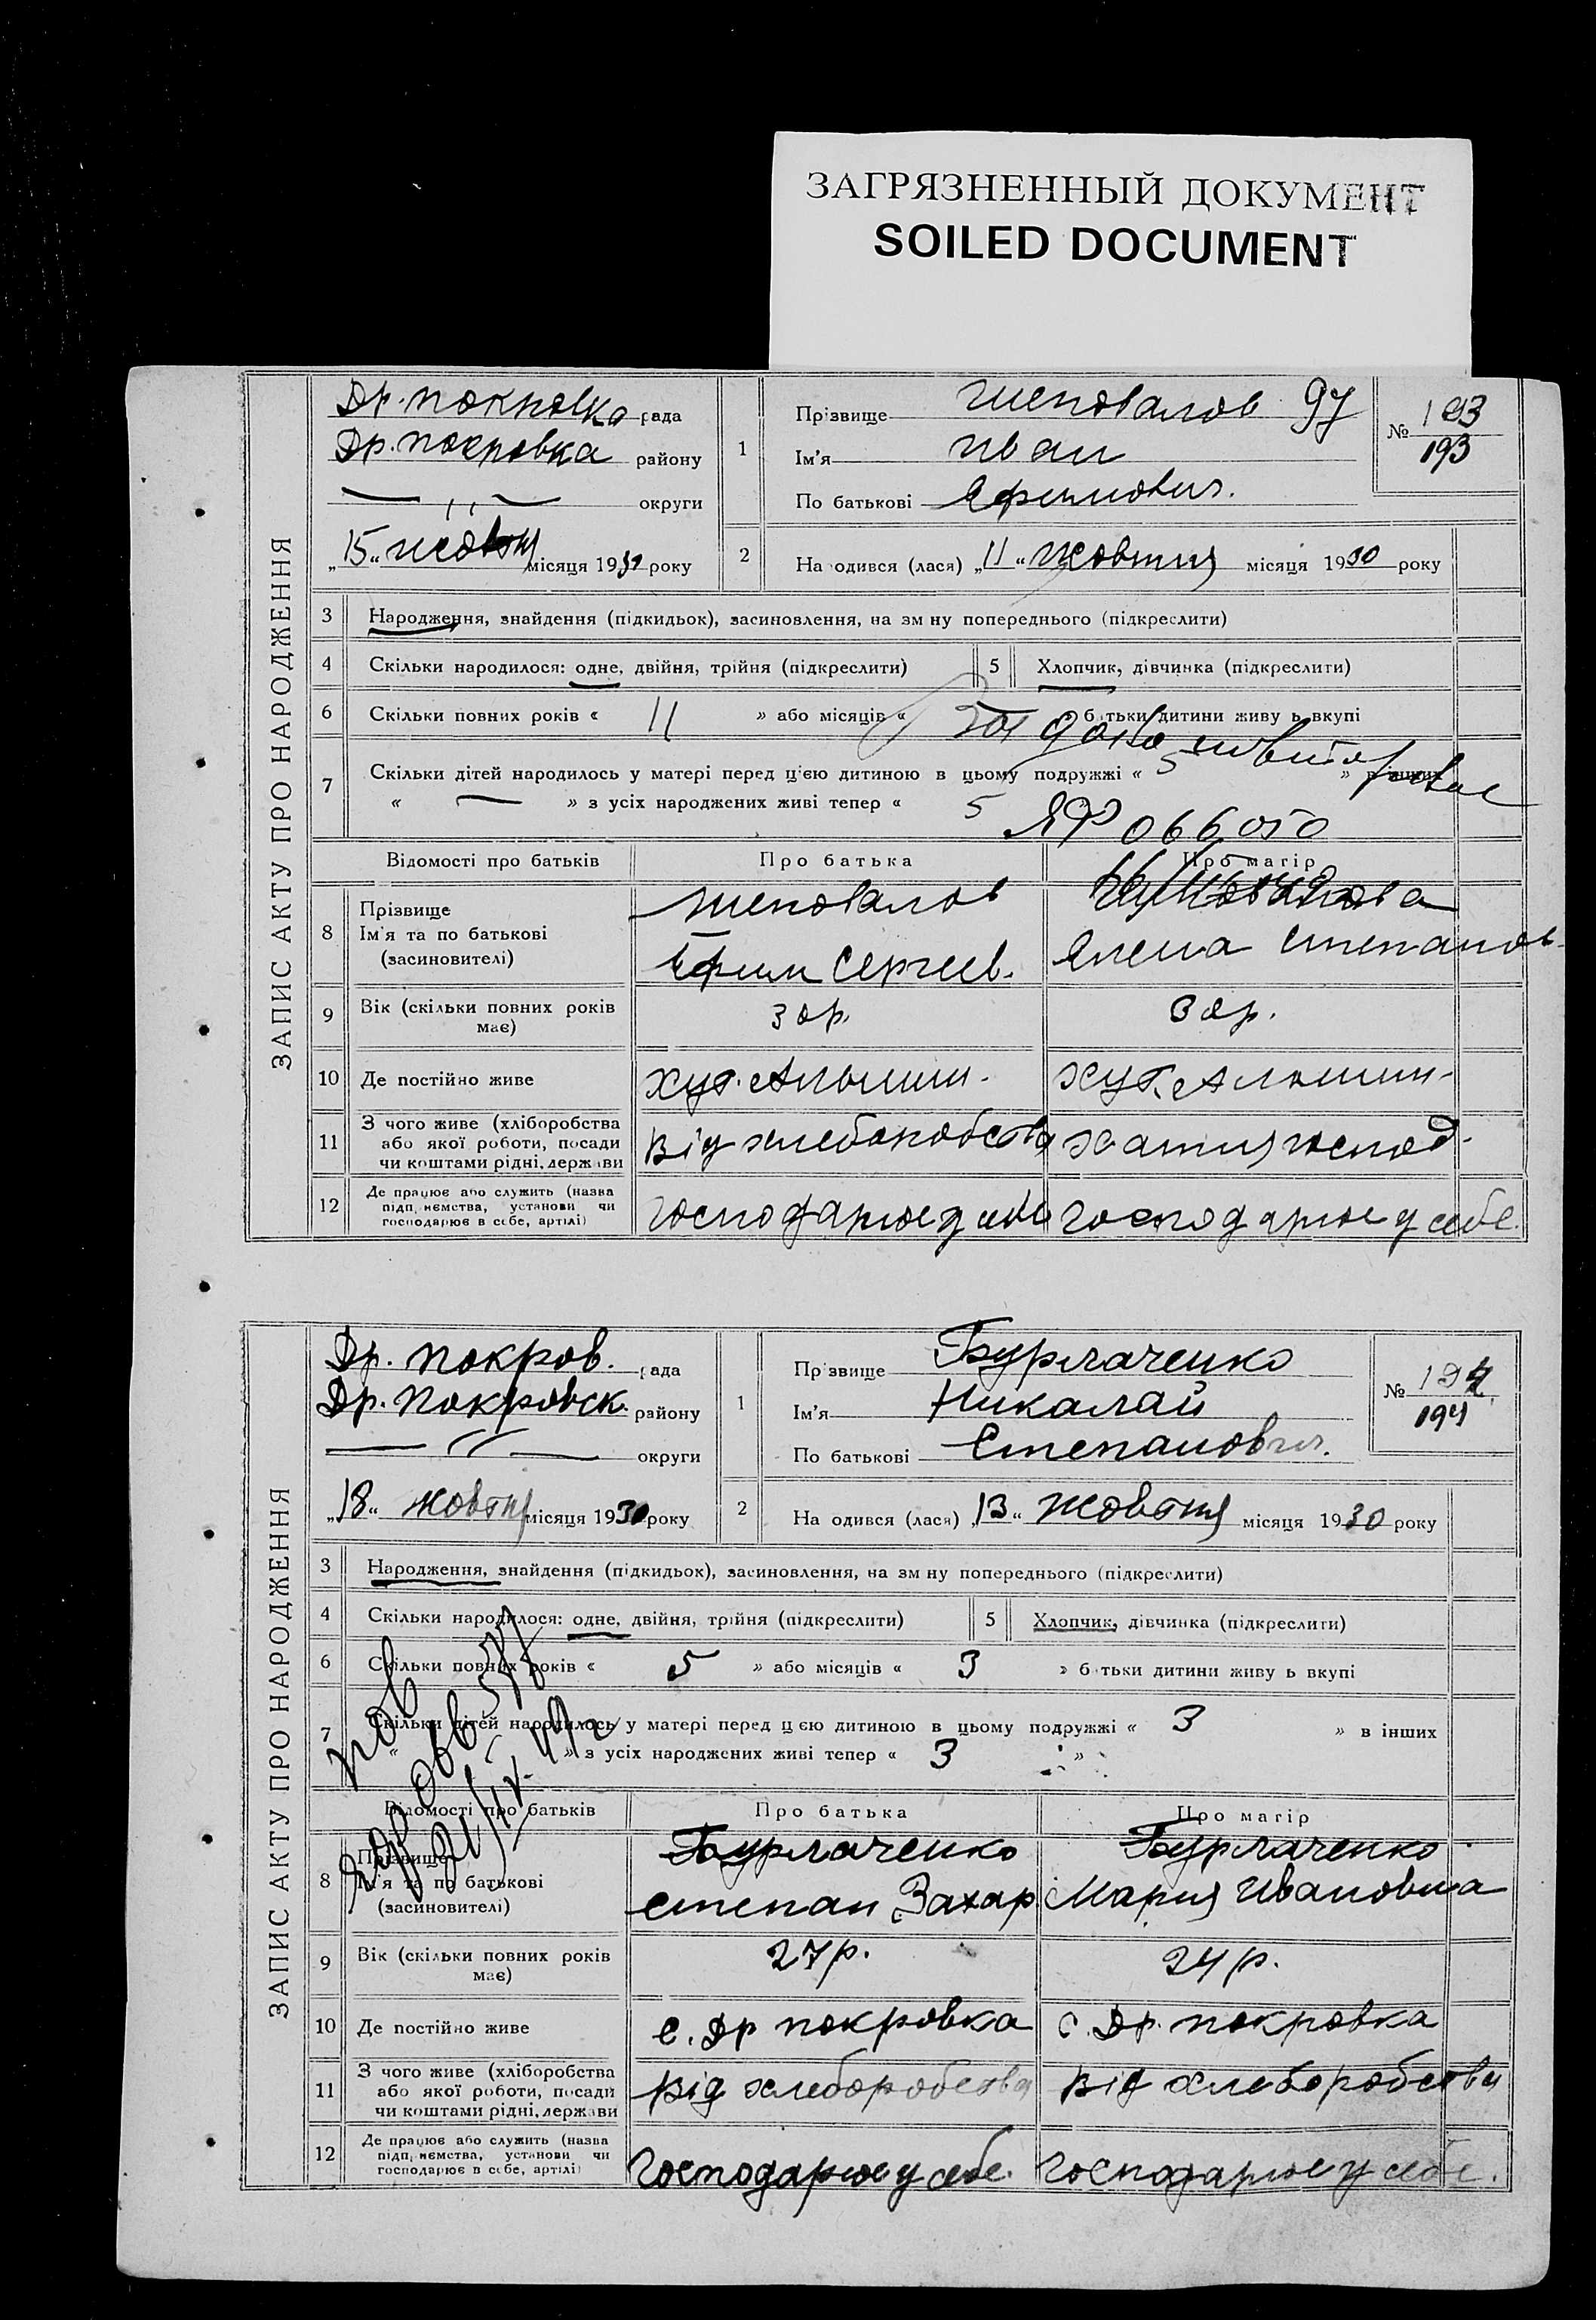 ЗАГРЯЗНЕННЫЙ ДОКУМЕНТ
SOILED DOCUMENT
ЗАПИС АКТУ ПРО НАРОДЖЕННЯ
Др. Покровка рада
Др. Покровка району
— " — округи
„15“ жовтня місяця 1930 року
1
Прізвище Шеповалов 97
Ім'я Иван
По батькові Ефимович.
№ 193
193
2 На одився (лася) „11“ жовтня місяця 1930 року
3 Народження, знайдення (підкидьок), засиновлення, на зм ну попереднього (підкреслити)
4 Скільки народилося: одне, двійня, трійня (підкреслити)
5 Хлопчик, дівчинка (підкреслити)
6 Скільки повних років « 11 » або місяців « б тьки дитини живу ь вкупі
7 Скільки дітей народилось у матері перед цією дитиною в цьому подружжі « 5 » в інших
« — » з усіх народжених живі тепер « 5 »
ЯР 066050
Відомості про батьків Про батька Про матір
8 Прізвище
Ім'я та по батькові
(засиновителі)
Шеповалов
Ефим Сергеев.
Елена Степанов
9 Вік (скільки повних років має)
30р.
30р.
10 Де постійно живе
хут. Альшин.
хут. Альшин.
11 З чого живе (хліборобства
або якої роботи, посади
чи коштами рідні, держави
Від хлеборобства
хатня господ.
12 Де працює або служить (назва
підприємства, установи чи
господарює в себе, артілі)
Господарює у себе
Господарює у себе.
ЗАПИС АКТУ ПРО НАРОДЖЕННЯ
Др. Покров. рада
Др. Покровск. району
— " — округи
„18“ жовтня місяця 1930 року
1
Пр звище Бурлаченко
Ім'я Николай
По батькові Степанович.
№ 194
194
2 На одився (лася) „13“ жовтня місяця 1930 року
3 Народження, знайдення (підкидьок), засиновлення, на зм ну попереднього (підкреслити)
4 Скільки народилося: одне, двійня, трійня (підкреслити)
5 Хлопчик, дівчинка (підкреслити)
6 Скільки повних років « 5 » або місяців « 3 » б тьки дитини живу ь вкупі
7 Скільки дітей народилось у матері перед цією дитиною в цьому подружжі « 3 » в інших
« » з усіх народжених живі тепер « 3 »
Відомості про батьків Про батька Про матір
8 Прізвище
Ім'я та по батькові
(засиновителі)
Бурлаченко
Степан Захар
Бурлаченко
Мария Ивановна
9 Вік (скільки повних років має)
27р.
24р.
10 Де постійно живе
с. Др Покровка
с. Др. Покровка
11 З чого живе (хліборобства
або якої роботи, посади
чи коштами рідні, держави
Від хлеборобства
Від хлеборобства
12 Де працює або служить (назва
підприємства, установи чи
господарює в себе, артілі)
Господарює у себе.
Господарює у себе.